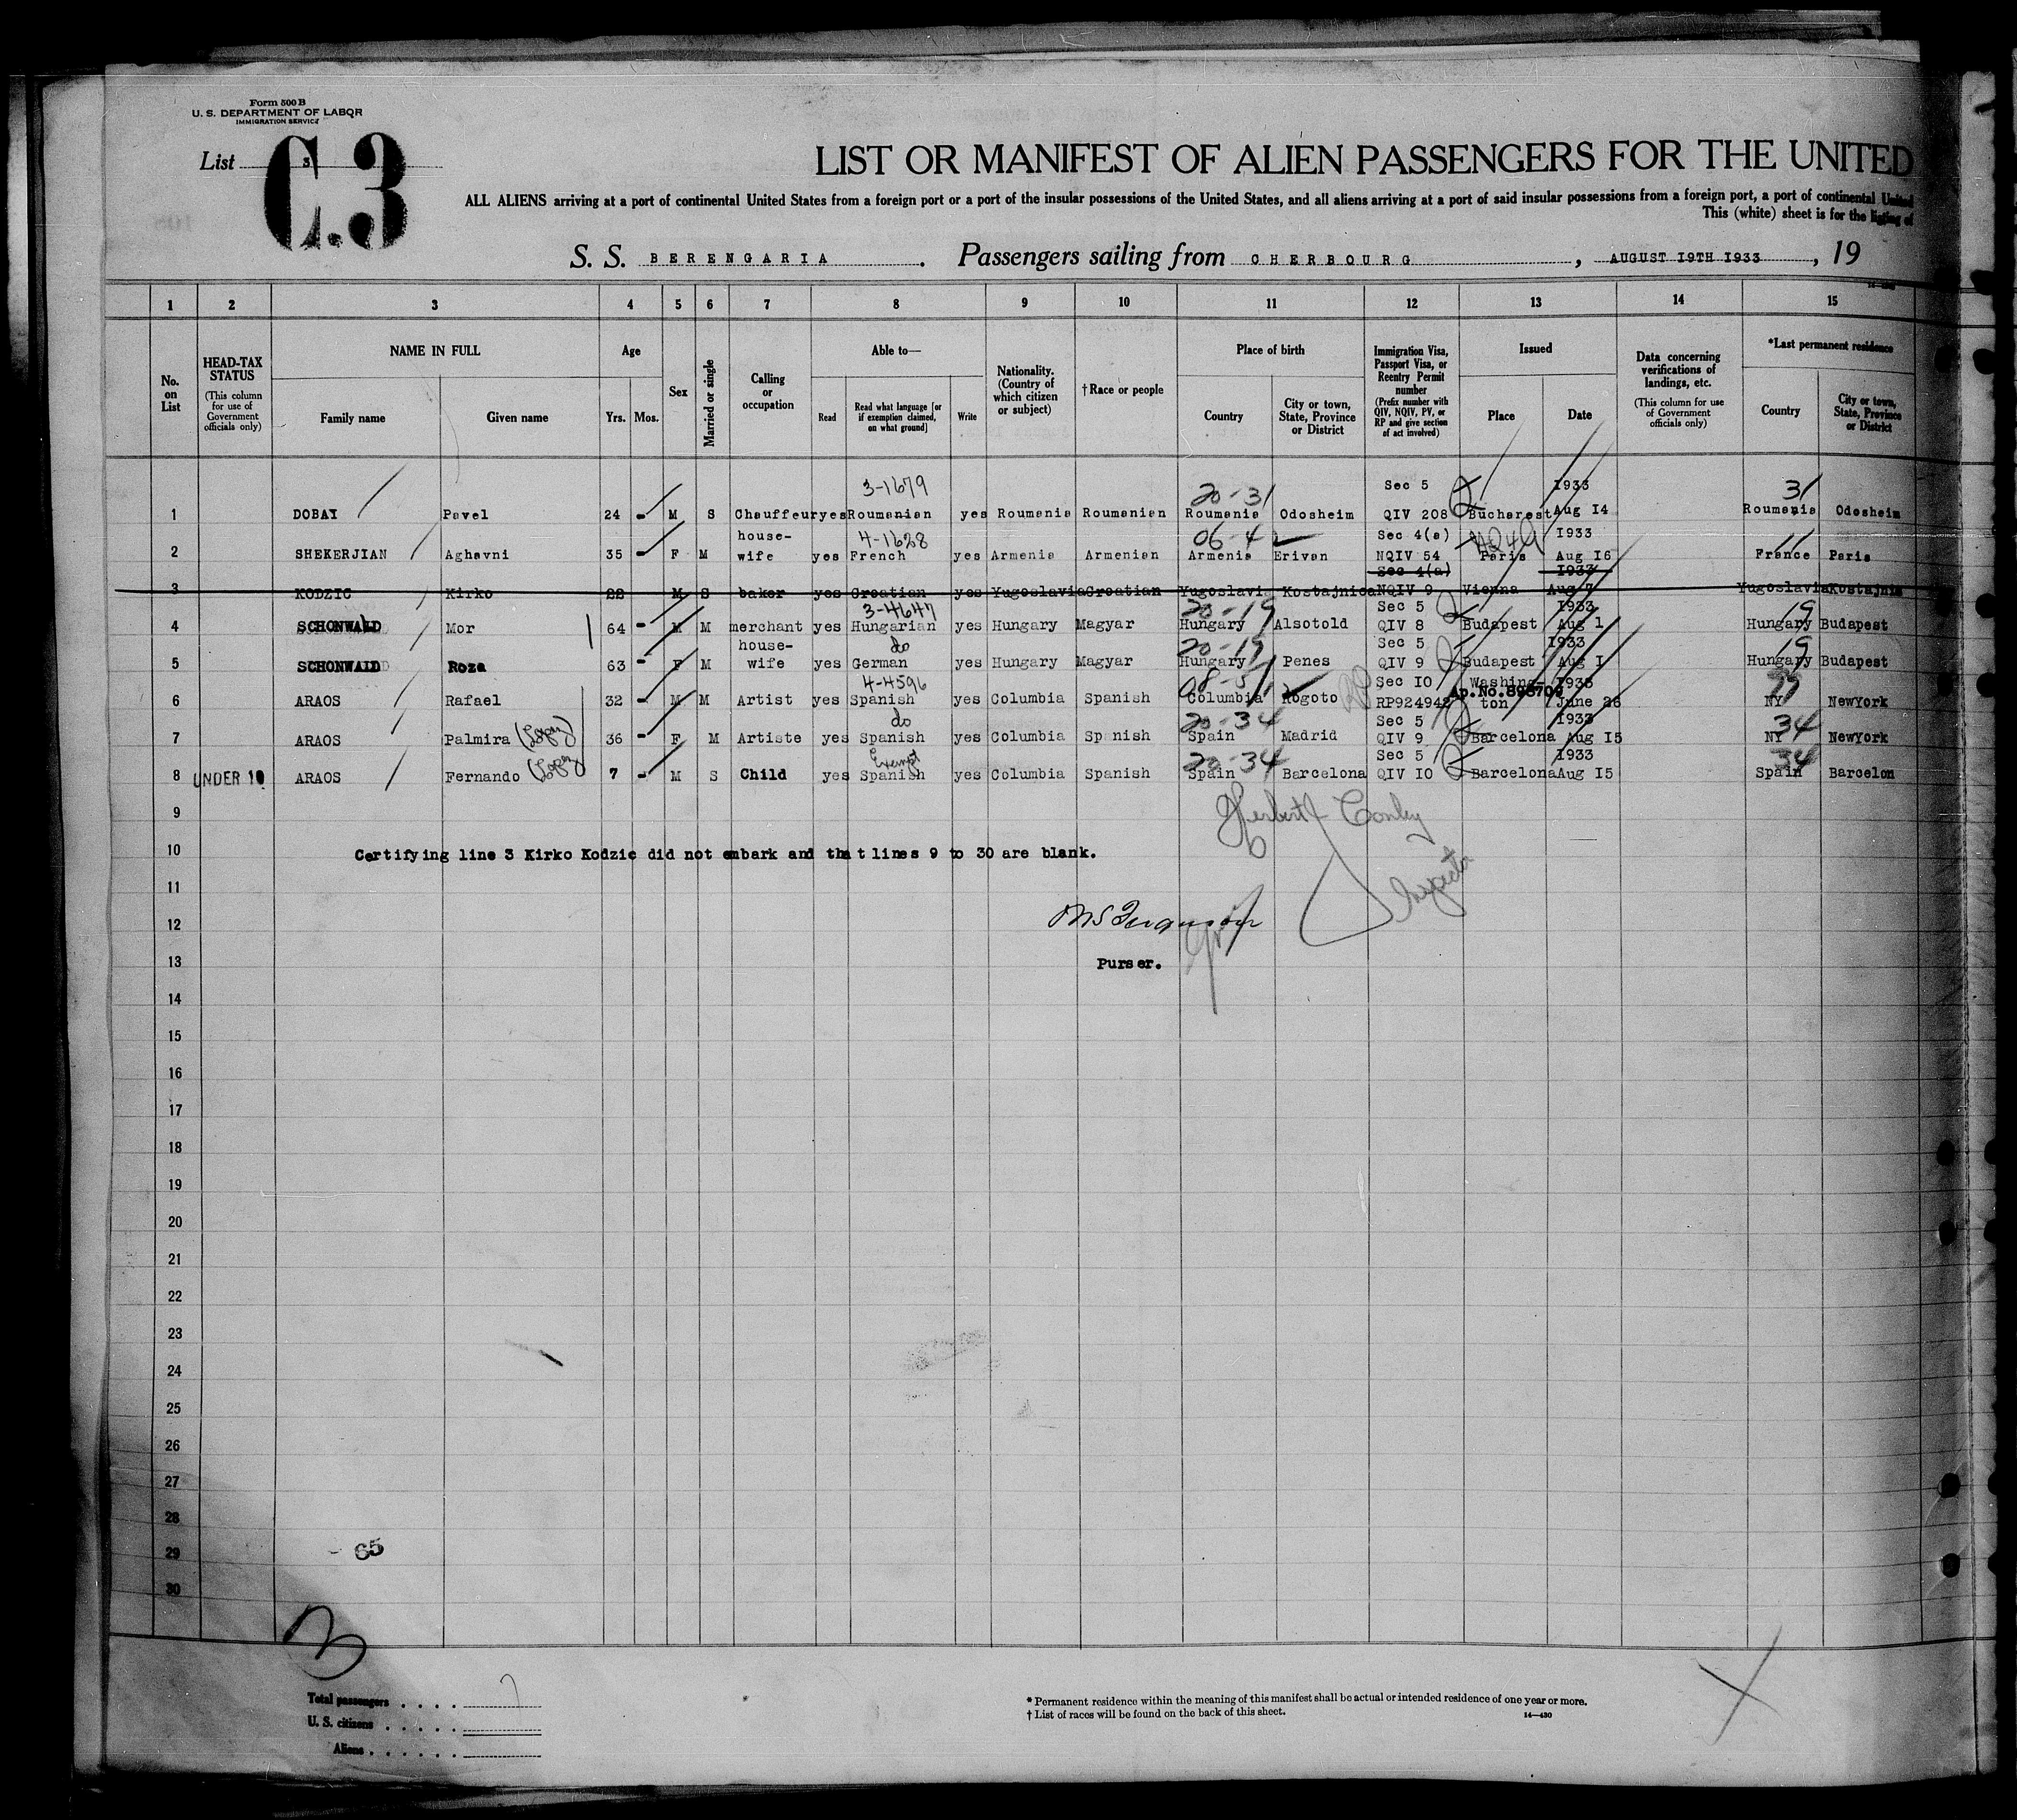 Form 500 B
U. S. DEPARTMENT OF LABOR
IMMIGRATION SERVICE
List 3
C.3
LIST OR MANIFEST OF ALIEN PASSENGERS FOR THE UNITED
ALL ALIENS arriving at a port of continental United States from a foreign port or a port of the insular possessions of the United States, and all aliens arriving at a port of said insular possessions from a foreign port, a port of continental United
This (white) sheet is for the listing of
S. S. BERENGARIA. Passengers sailing from CHERBOURG, AUGUST I9TH I933, 19
1 2 3 4 5 6 7 8 9 10 11 12 13 14 15
No. on List
HEAD-TAX STATUS
(This column for use of Government officials only)
NAME IN FULL
Family name Given name
Age
Yrs. Mos.
Sex
Married or single
Calling or occupation
Able to—
Read
Read what language [or if exemption claimed, on what ground]
Write
Nationality. (Country of which citizen or subject)
† Race or people
Place of birth
Country
City or town, State, Province or District
Immigration Visa, Passport Visa, or Reentry Permit number
(Prefix number with QIV, NQIV, PV, or RP and give section of act involved)
Issued
Place Date
Data concerning verifications of landings, etc.
(This column for use of Government officials only)
*Last permanent residence
Country
City or town, State, Province or District
3-1679 20-31 Sec 5 I933 31
1 DOBAY Pavel 24 - M S Chauffeur yes Roumanian yes Roumania Roumanian Roumania Odosheim QIV 208 Bucharest Aug I4 Roumania Odosheim
house- 4-1628 06-4 Sec 4(a) I933
2 SHEKERJIAN Aghavni 35 - F M wife yes French yes Armenia Armenian Armenia Erivan NQIV 54 Paris Aug I6 France Paris
Sec 4(a) I933
3 KODZIC Kirko 22 M S baker yes Croatian yes Yugoslavia Croatian Yugoslavia Kostajnica NQIV 9 Vienna Aug 7 Yugoslavia Kostajnia
3-4647 20-19 Sec 5 I933 19
4 SCHONWALD Mor 64 - M M merchant yes Hungarian yes Hungary Magyar Hungary Alsotold QIV 8 Budapest Aug 1 Hungary Budapest
house- do 20-19 Sec 5 I933 19
5 SCHONWALD Roza 63 - F M wife yes German yes Hungary Magyar Hungary Penes QIV 9 Budapest Aug I Hungary Budapest
4-4596 08-5 Sec IO Washing- I933
Ap.No.898709
6 ARAOS Rafael 32 - M M Artist yes Spanish yes Columbia Spanish Columbia Bogoto RP924942 ton June 26 NY NewYork
do 20-34 Sec 5 I933 34
7 ARAOS Palmira (Lopez) 36 - F M Artiste yes Spanish yes Columbia Spanish Spain Madrid QIV 9 Barcelona Aug I5 NY NewYork
Exempt 20-34 Sec 5 I933 34
8 UNDER 10 ARAOS Fernando (Lopez) 7 - M S Child yes Spanish yes Columbia Spanish Spain Barcelona QIV IO Barcelona Aug I5 Spain Barcelon
9
Herbert Conley
10 Certifying line 3 Kirko Kodzic did not embark and that lines 9 to 30 are blank.
11
Inspector
12
Ferguson
13 Purser.
14
15
16
17
18
19
20
21
22
23
24
25
26
27
28
29 - 65
30
3
Total passengers . . . . 7
U. S. citizens . . . . .
Aliens . . . . . .
* Permanent residence within the meaning of this manifest shall be actual or intended residence of one year or more.
† List of races will be found on the back of this sheet. 14—430